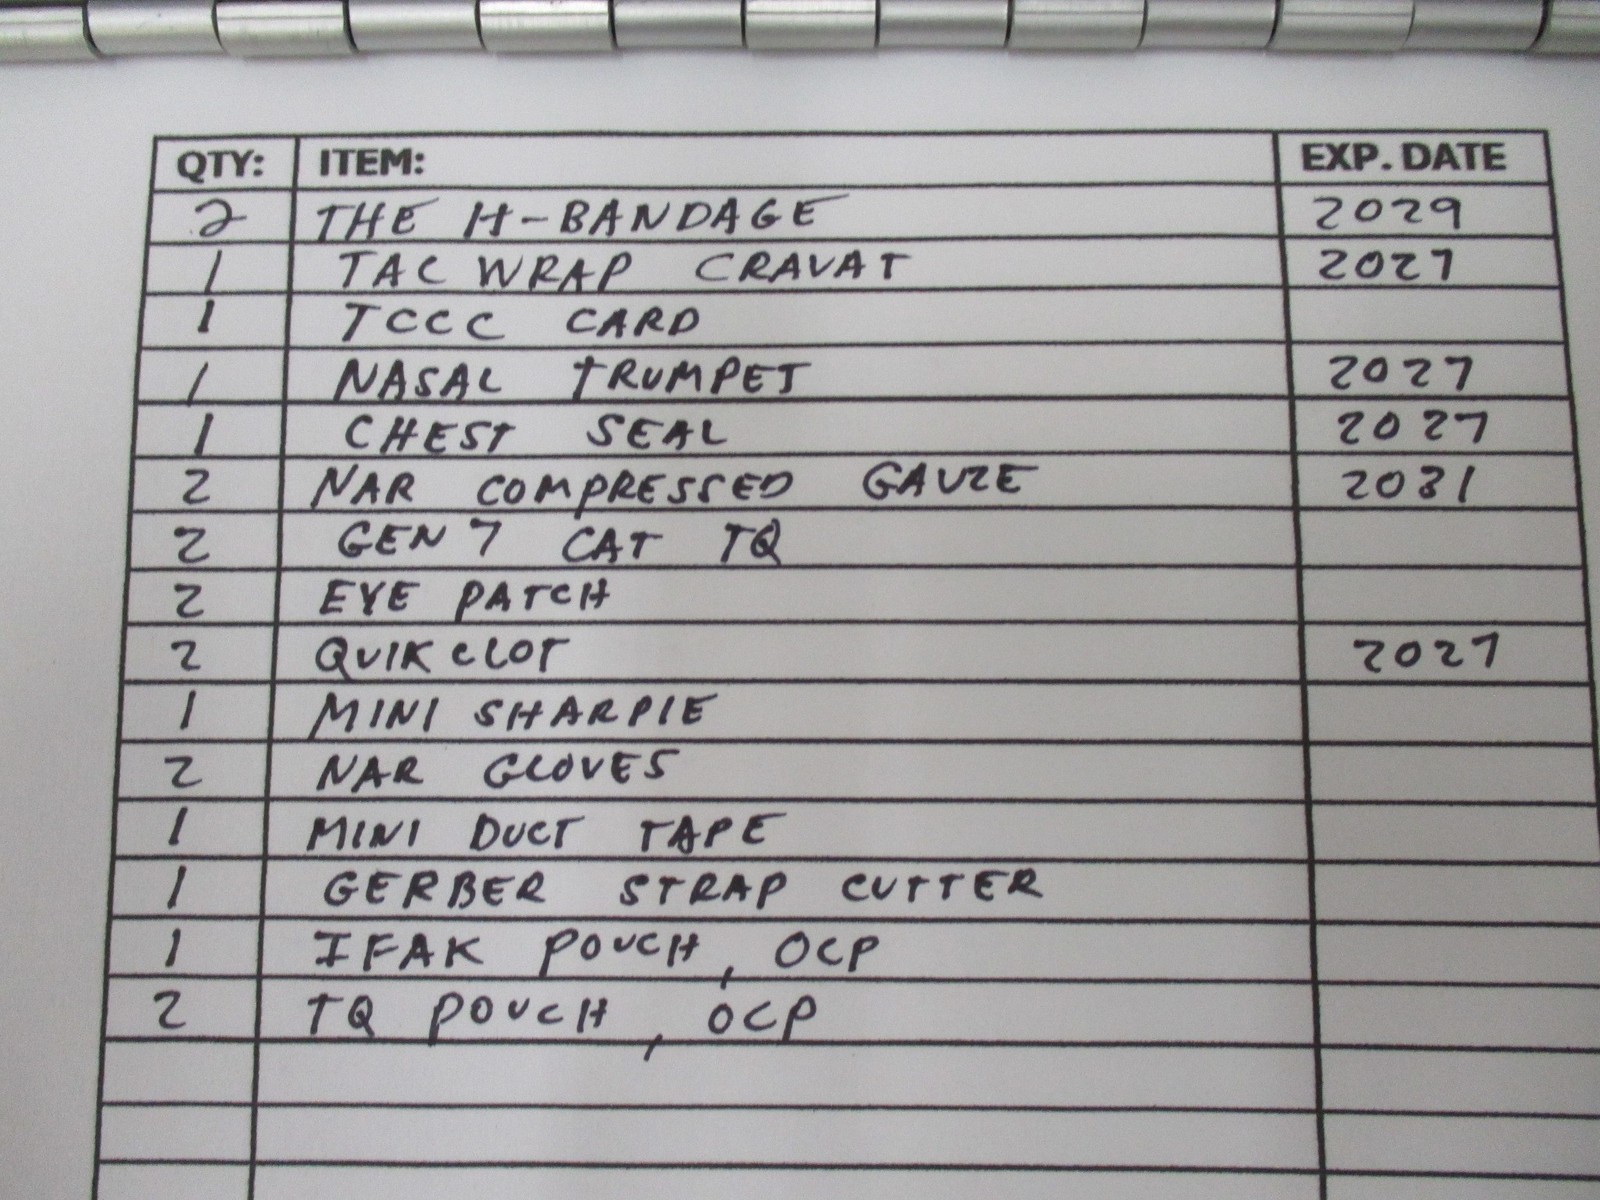 QTY: ITEM: EXP. DATE
2 THE H-BANDAGE 2029
1 TAC WRAP CRAVAT 2027
1 TCCC CARD
1 NASAL TRUMPET 2027
1 CHEST SEAL 2027
2 NAR COMPRESSED GAUZE 2031
2 GEN 7 CAT TQ
2 EYE PATCH
2 QUIKCLOT 2027
1 MINI SHARPIE
2 NAR GLOVES
1 MINI DUCT TAPE
1 GERBER STRAP CUTTER
1 IFAK POUCH, OCP
2 TQ POUCH, OCP